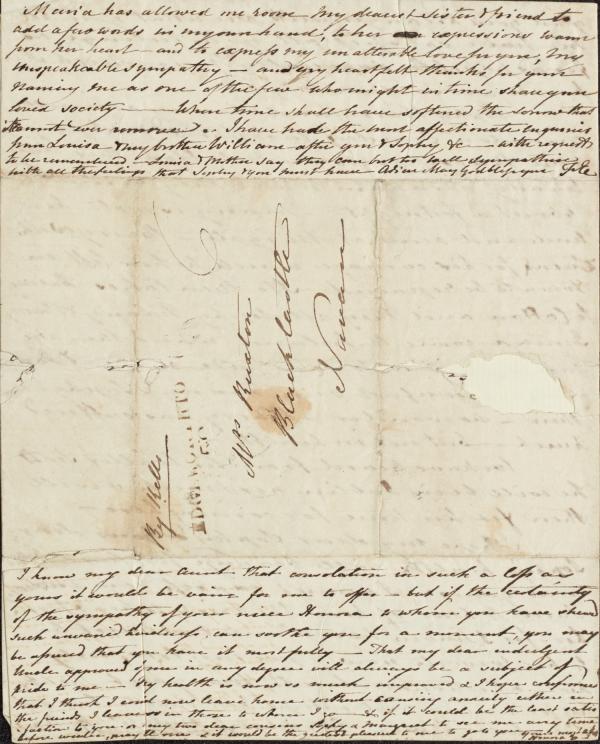 Maria has allowed me room my dearest sister & friend to
add a few words in my own hand, to her expressions warm
from her heart — and to express my unalterable love for you, my
unspeakable sympathy — and my heartfelt thanks for your
naming me as one of the few who might in time share your
loved society — When time shall have softened the sorrow that
it cannot ever remove. I have had the most affectionate enquiries
from Louisa & my brother William after you & Sophy, &c — with request
to be remembered — Louisa & Mother say they can but too well sympathise
with all the feelings that Sophy & you must have — Adieu May God bless you
Mrs Ruxton
Black Castle
Navan
EDGEWORTHTO
By Kells
I know my dear Aunt that consolation in such a loss as
yours it would be vain for me to offer — but if the certainty
of the sympathy of your niece Honora to whom you have shewn
such unvaried kindness, can soothe you for a moment, you may
be assured that you have it most fully — That my dear indulgent
Uncle approved of me in any degree will always be a subject of
pride to me — My health is now so much improved & I hope confirmed
that I think I could now leave home without causing anxiety either in
the friends I leave or in those to whom I go — & if it could be the least satis
faction to you or my two dear cousins Sophy & Margaret to see me any time
before winter, pray tell me & it would be the greatest pleasure to me to go to you
Honora E